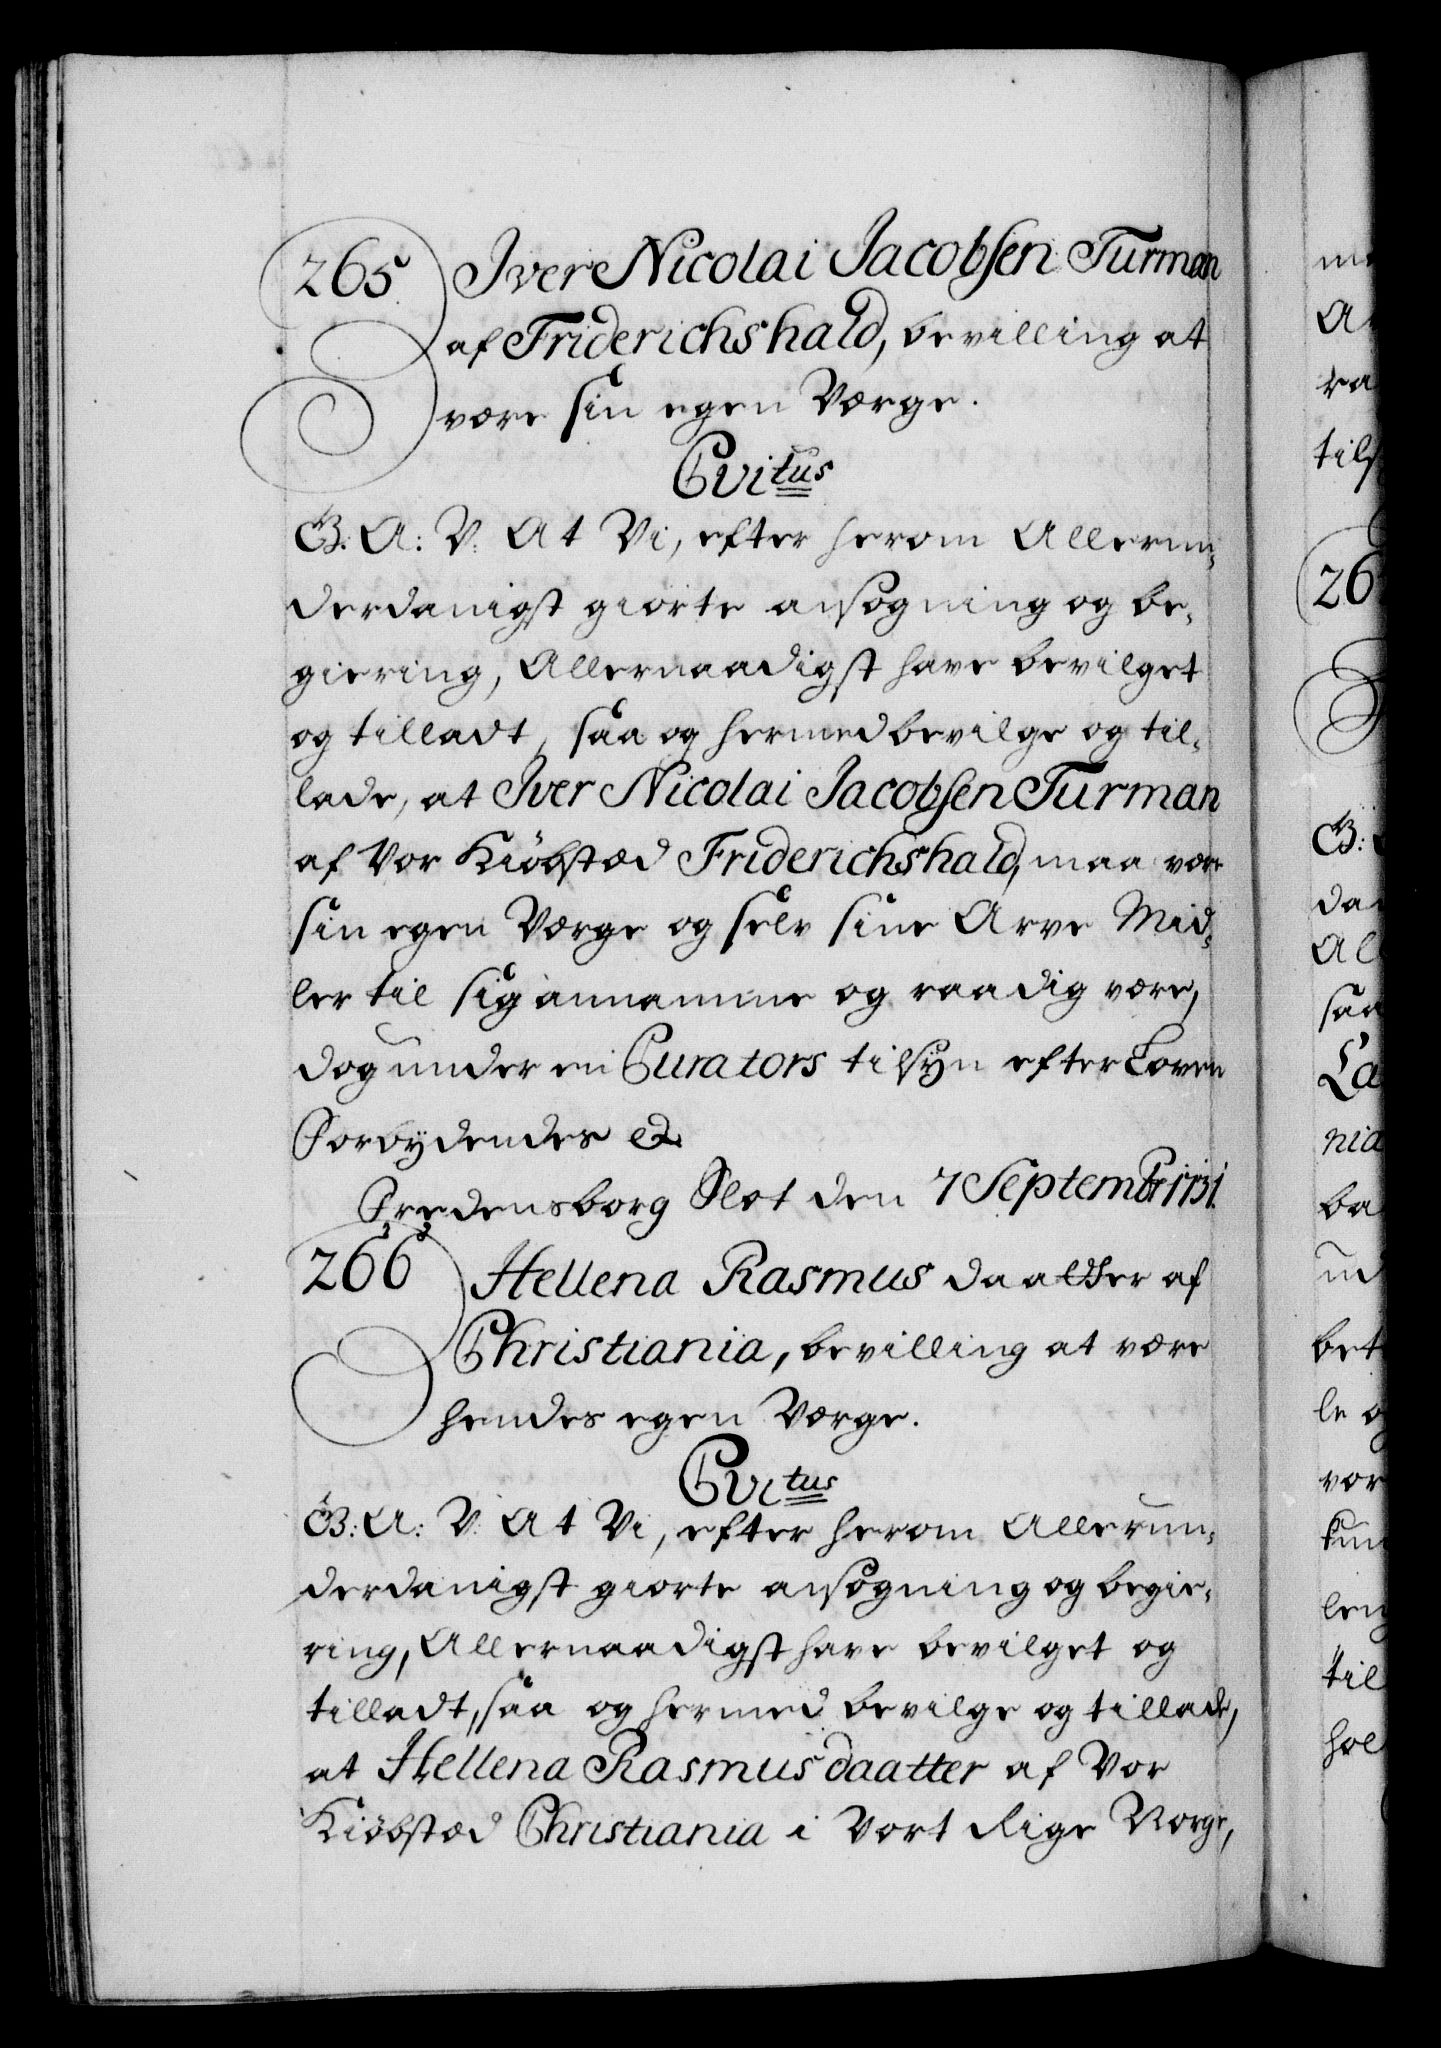 265. Iver Nicolai Jacobsen Turman
af Friderichshald, bevilling at
være sin egen Værge.
Cvitus
G: A: V: At Vi, efter herom Allerun-
derdanigst giorte ansøgning og be-
giering, Allernaadigst have bevilget
og tilladt, saa og hermed bevilge og til-
lade, at Iver Nicolai Jacobsen Turman
af Vor Kiøbstæd Friderichshald, maa være
sin egen Værge og selv sine Arve Mid-
ler til sig annamme og raadig være,
dog under en Curators tilsyn efter Loven
Forbydendes etc.
Fredensborg Slot den 7 Septembr 1731.
266 Hellena Rasmus daatter af
Christiania, bevilling at være
hendes egen Værge.
Cvitus
G: A: V: At Vi, efter herom Allerun-
derdanigst giorte ansøgning og begie-
ring, Allernaadigst have bevilget og
tilladt, saa og hermed bevilge og tillade,
at Hellena Rasmus daatter af Vor
Kiøbstæd Christiania i Vort Rige Norge,